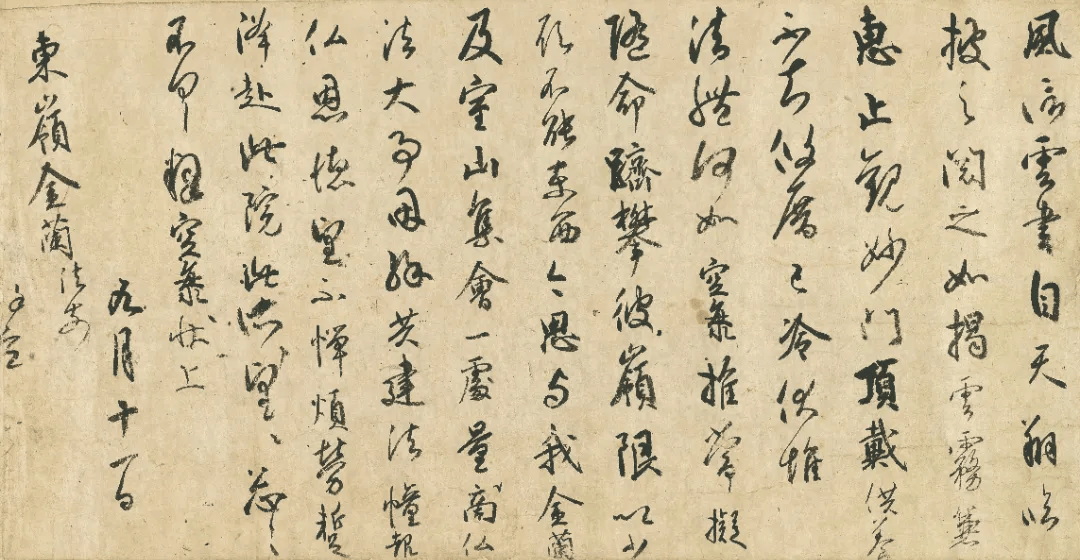 風信雲書自天翔臨
披之閱之如揭雲霧兼
惠止觀妙門頂戴供養
不知攸厝已冷伏惟
法體何如空海推常擬
隨命躋攀彼嶺限以少
願不能東西今思与我金蘭
及室山集會一處量商仏
法大事因緣共建法幢報
仏恩德望不憚煩勞蹔
降赴此院此所望望忩忩
不具釋空海狀上
九月十一日
東嶺金蘭法前
謹空